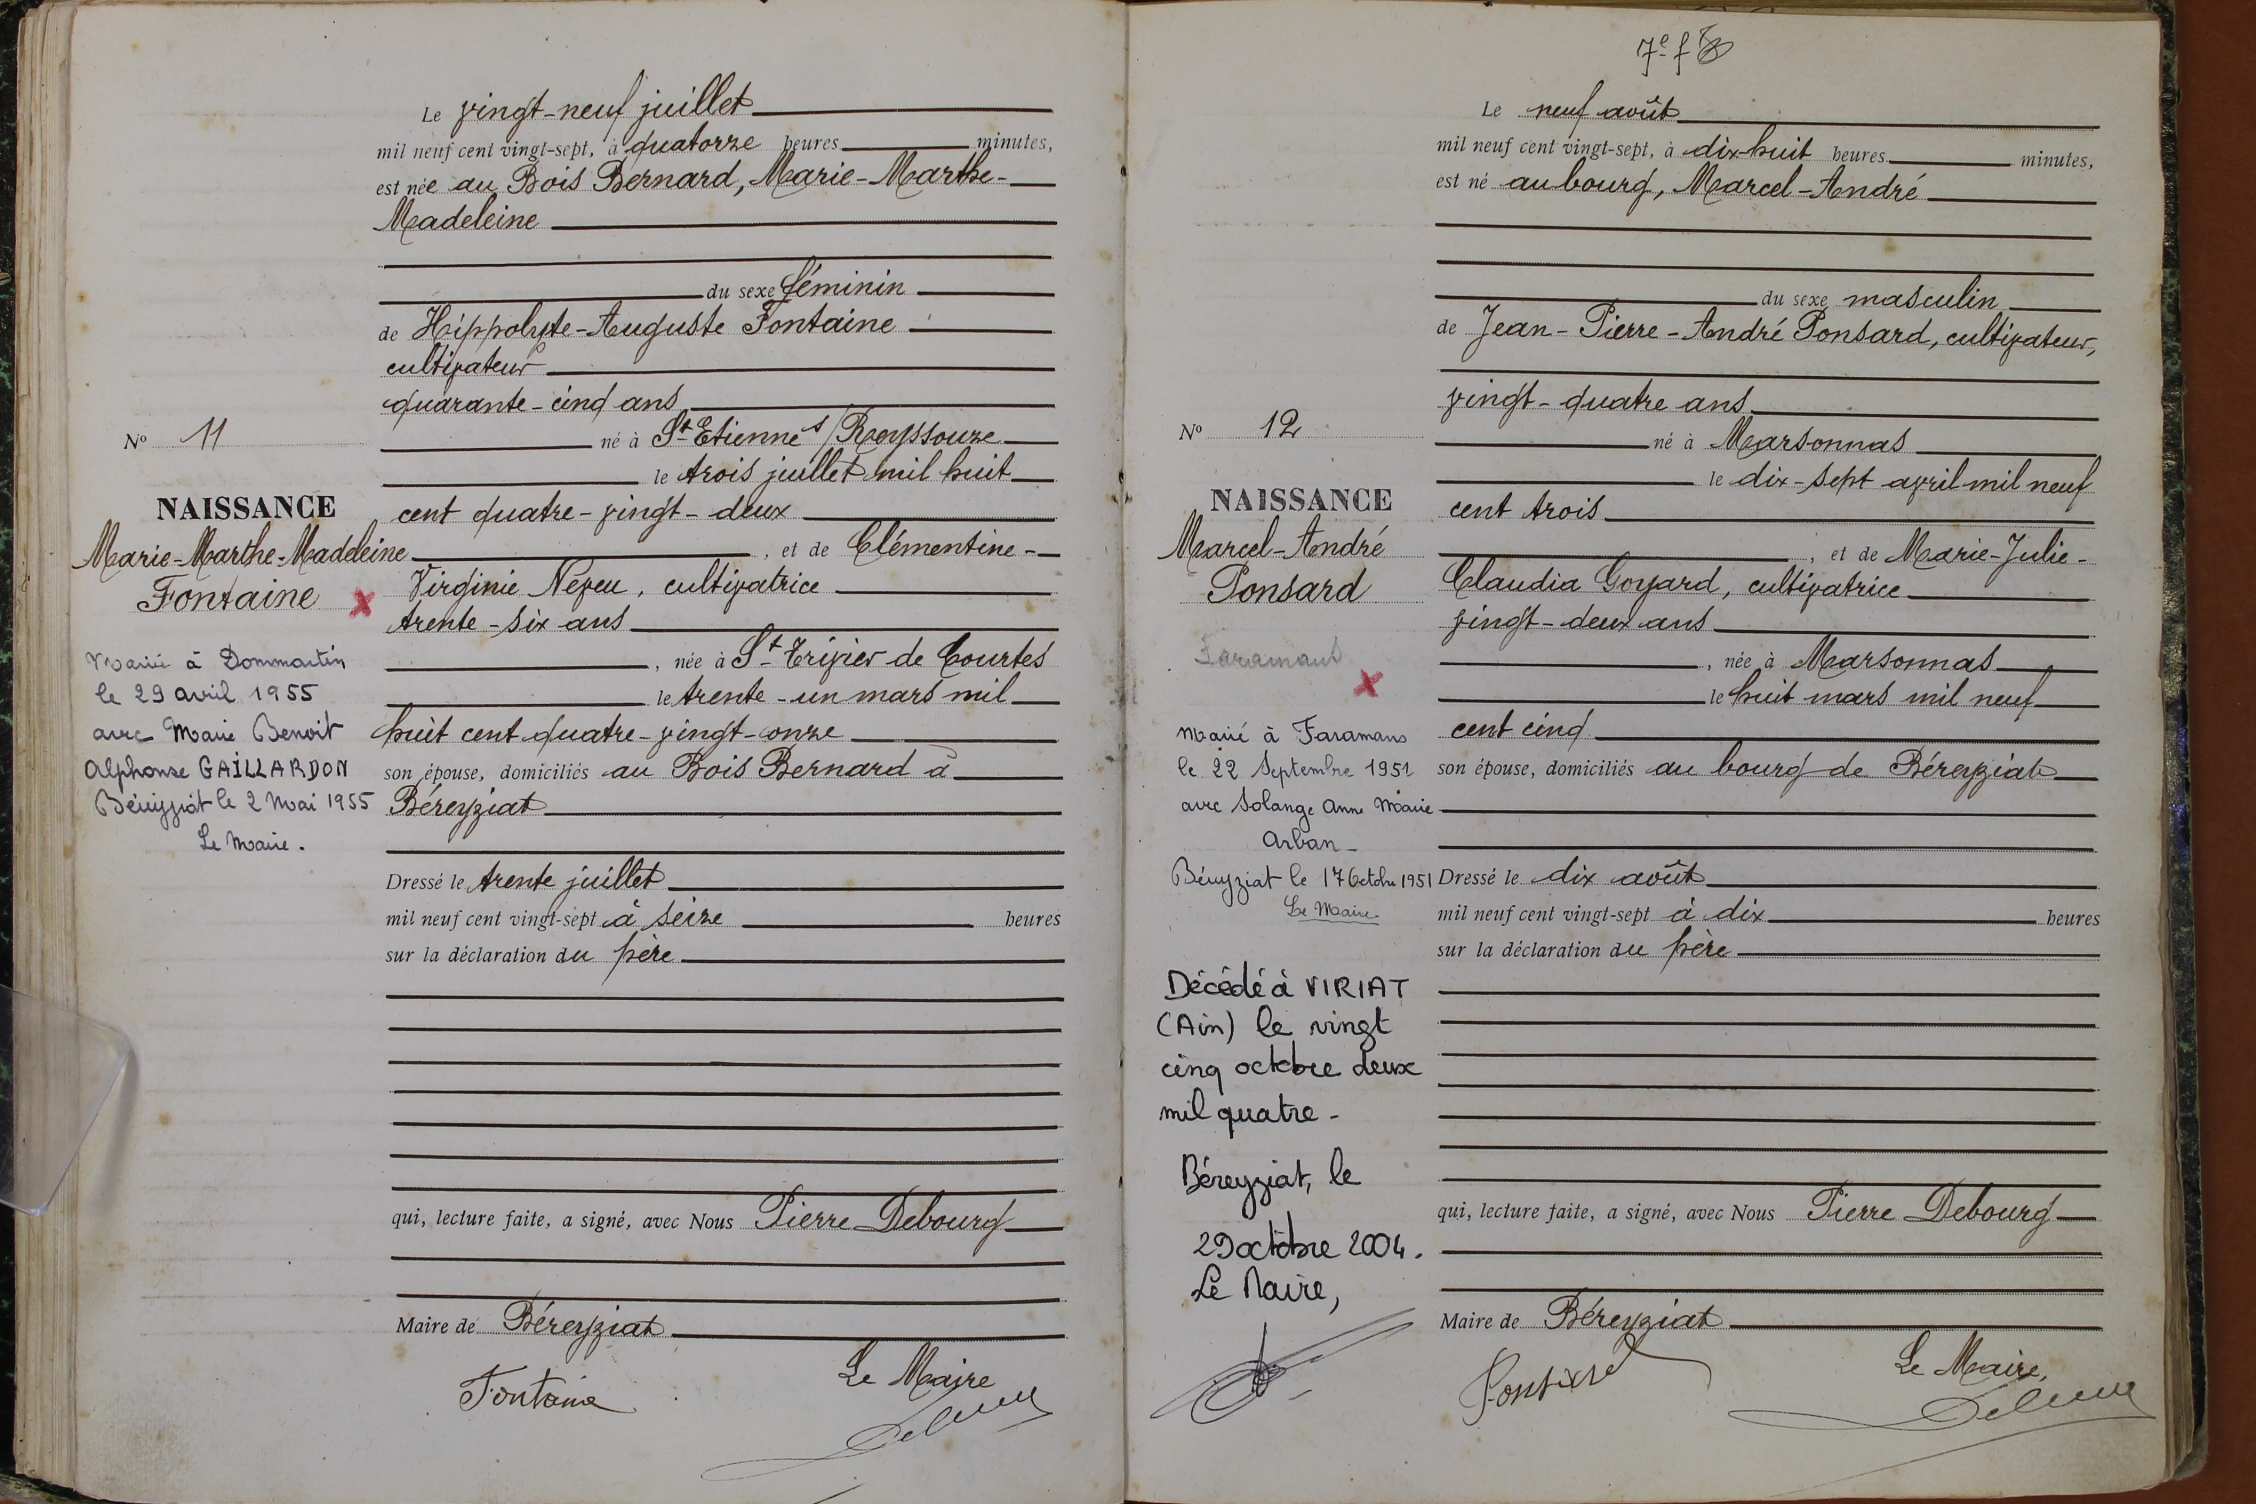 Le vingt-neuf juillet
mil neuf cent vingt-sept, à quatorze heures minutes,
est née au Bois Bernard, Marie-Marthe-
Madeleine
du sexe féminin
de Hippolyte-Auguste Fontaine
cultivateur
quarante-cinq ans
né à St Etienne s/Reyssouze
le trois juillet mil huit
cent quatre-vingt-deux
, et de Clémentine-
Virginie Neveu, cultivatrice
trente-six ans
, née à St Trivier de Courtes
le trente-un mars mil
huit cent quatre-vingt-onze
son épouse, domiciliés au Bois Bernard à
Béreyziat
Dressé le trente juillet
mil neuf cent vingt-sept à seize heures
sur la déclaration du père
qui, lecture faite, a signé, avec Nous Pierre Debourg
Maire de Béreyziat
Le Maire
Fontaine
No 11
NAISSANCE
Marie-Marthe-Madeleine
Fontaine
Mariée à Dommartin
le 29 avril 1955
avec Marie Benoit
Alphonse GAILLARDON
Béréyziat le 2 Mai 1955
Le Maire.
7e f
Le neuf août
mil neuf cent vingt-sept, à dix-huit heures minutes,
est né au bourg, Marcel-André
du sexe masculin
de Jean-Pierre-André Ponsard, cultivateur,
vingt-quatre ans
né à Marsonnas
le dix-sept avril mil neuf
cent trois
, et de Marie-Julie-
Claudia Goyard, cultivatrice
vingt-deux ans
, née à Marsonnas
le huit mars mil neuf
cent cinq
son épouse, domiciliés au bourg de Béreyziat
Dressé le dix août
mil neuf cent vingt-sept à dix heures
sur la déclaration du père
qui, lecture faite, a signé, avec Nous Pierre Debourg
Maire de Béreyziat
Le Maire,
Ponsard
No 12
NAISSANCE
Marcel-André
Ponsard
Faramans
Marié à Faramans
le 22 Septembre 1951
avec Solange Anne Marie
Arban-
Béreyziat le 17 Octobre 1951
Le Maire
Décédé à VIRIAT
(Ain) le vingt
cinq octobre deux
mil quatre-
Béreyziat, le
29 octobre 2004.
Le Maire,